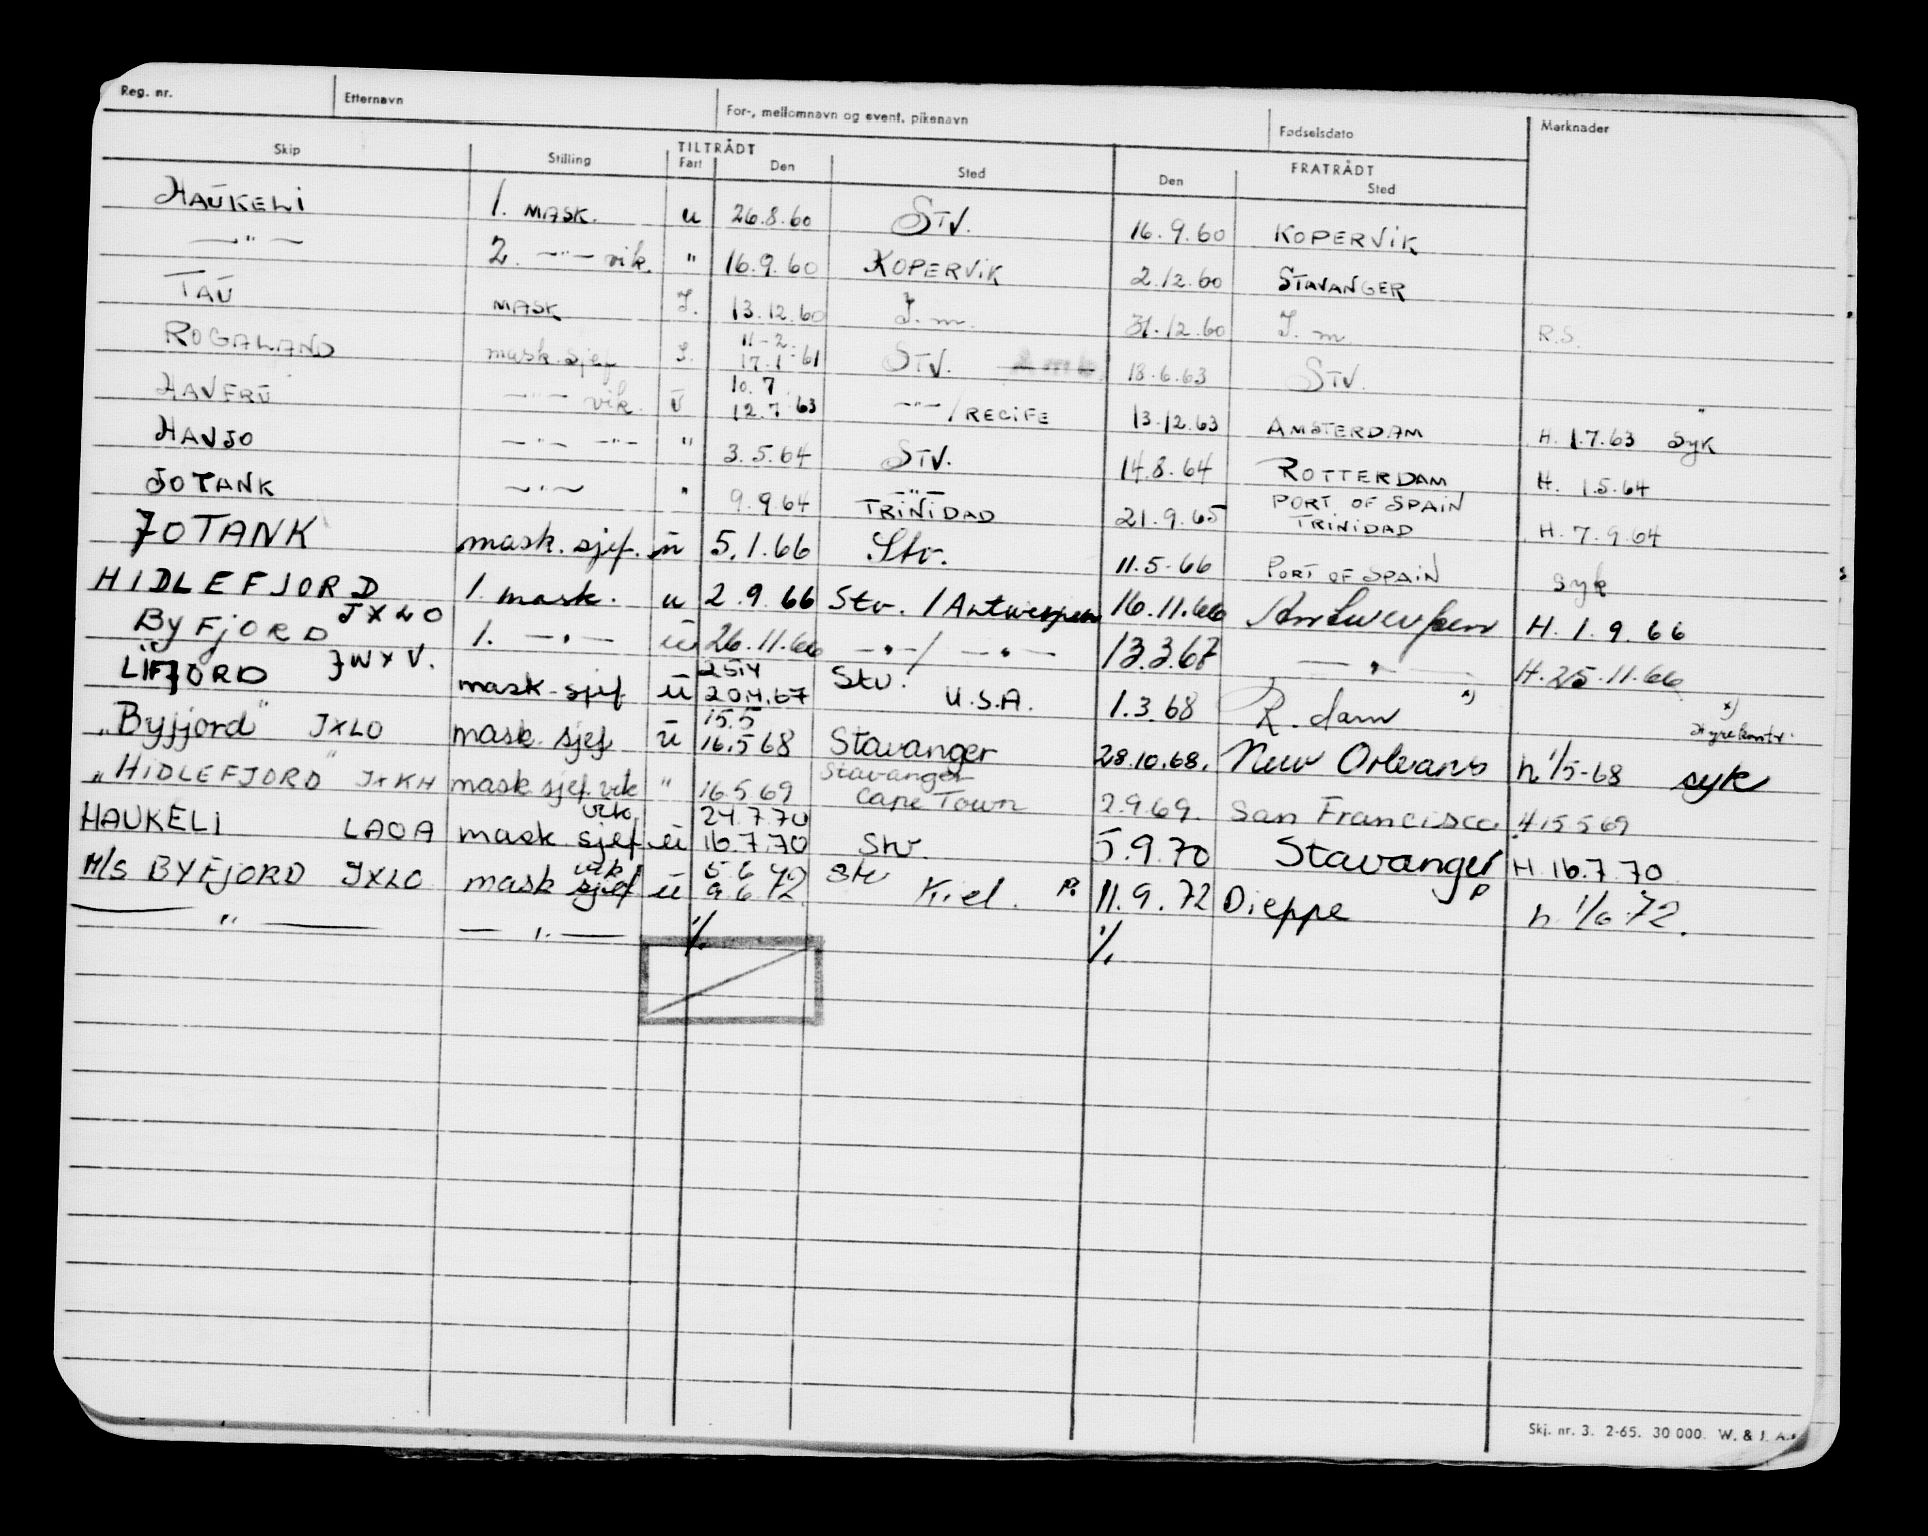 Reg. nr. Etternavn For-, mellomnavn og event. pikenavn Fødselsdato Marknader
Skip Stilling TILTRÅDT Fart Den Sted FRATRÅDT Den Sted
HAUKELI 1. MASK. u 26.8.60 STV. 16.9.60 KOPERVIK
—"— 2. —"— vik. " 16.9.60 KOPERVIK 2.12.60 STAVANGER
TAU MASK J. 13.12.60 J. m. 31.12.60 J. m R.S.
ROGALAND mask. sjef J. 11-2. 17.1-61 STV. 18.6.63 STV.
HAVFRU —"— vik. ū 10.7 12.7.63 —"— / RECIFE 13.12.63 AMSTERDAM H. 1.7.63 syk
HAVJO —"— —"— " 3.5.64 STV. 14.8.64 ROTTERDAM H. 1.5.64
JOTANK —"— " 9.9.64 —"— TRINIDAD 21.9.65 PORT OF SPAIN TRINIDAD H. 7.9.64
JOTANK mask. sjef. ū 5.1.66 Stv. 11.5-66 PORT OF SPAIN syk
HIDLEFJORD 1. mask. u 2.9.66 Stv. / Antwerpen 16.11.66 Antwerpen H. 1.9.66
BYFJORD JXLO 1. —"— ū 26.11.66 —"—/ —"— 13.3.67 —"— H. 25.11.66
LIFJORD JWXV. mask. sjef ū 25.4 20.4.67 Stv. U.S.A. 1.3.68 R.dam x) x) styrekontr.
"Byfjord" JXLO mask. sjef ū 15.5 16.5 68 Stavanger 28.10.68. New Orleans h 1/5-68 syk
"HIDLEFJORD" JXKH mask sjef. vik " 16.5 69 Stavanger Cape Town 2.9.69. San Francisco. H 15 5 69
HAUKELI LAOA mask. sjef vik. ū 24.7.70 16.7.70 Stv. 5.9.70 Stavanger H. 16.7.70
M/S BYFJORD JXLO mask sjef vik ū 5.6 72 9.6.72 Stv Kiel. P. 11.9.72 Dieppe P h. 1/6.72.
—"— —"— ./. ./.
Skj. nr. 3. 2-65. 30 000. W. & J. A.s